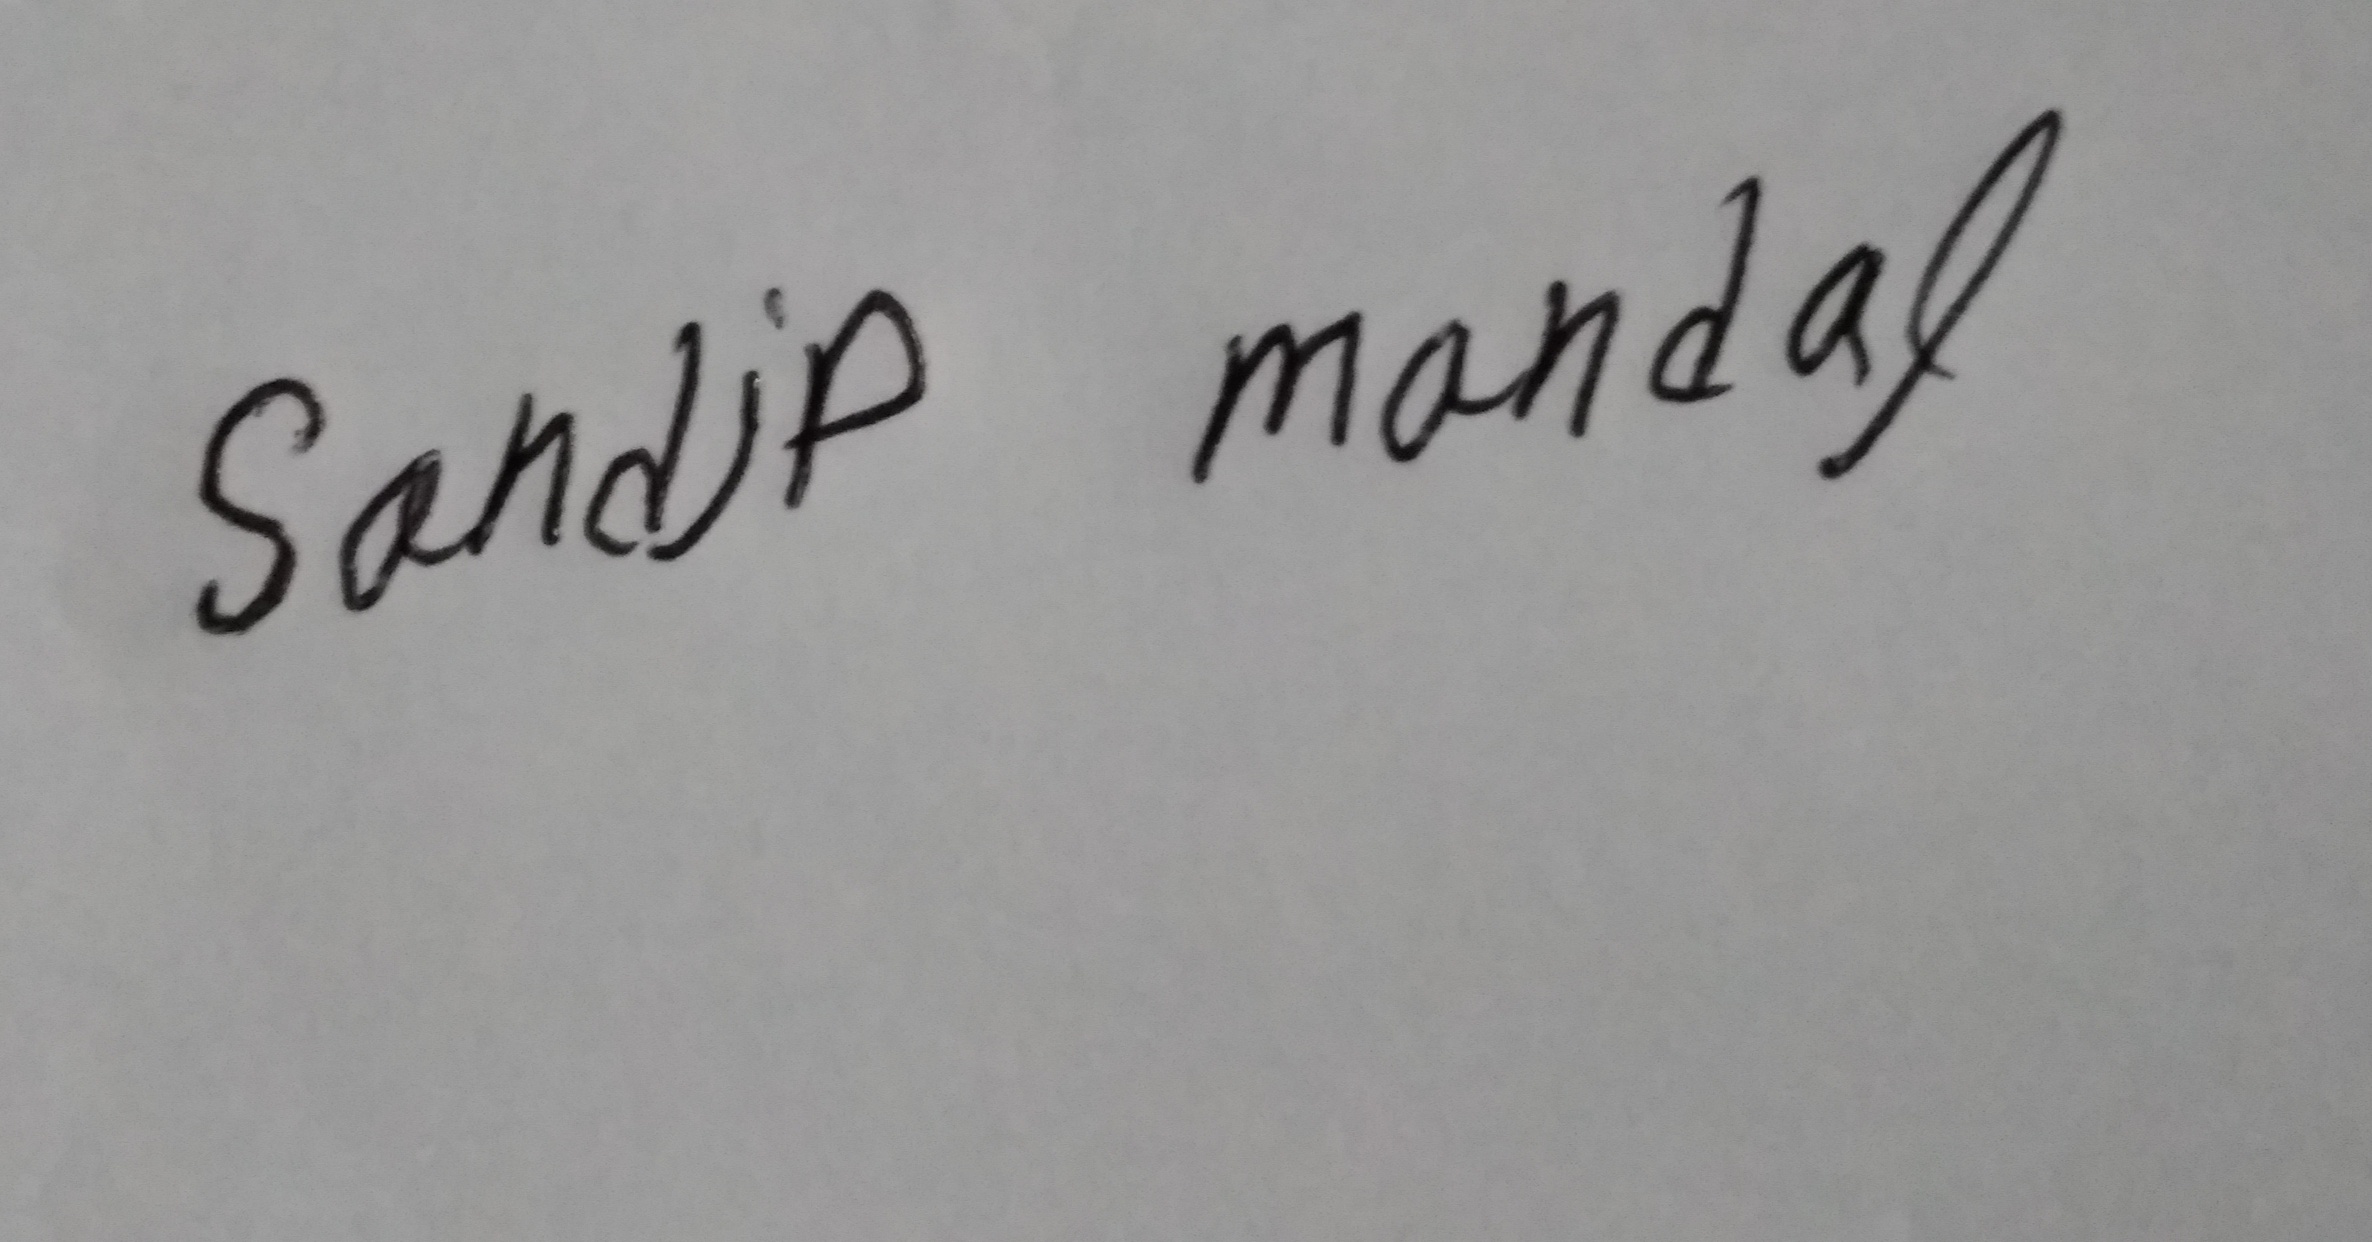 Sandip mandal